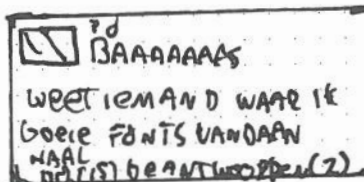 BAAAAAAAS
WEET IEMAND WAAR IK
GOEIE FONTS VANDAAN
HAAL
BEANTWOORDEN(2)